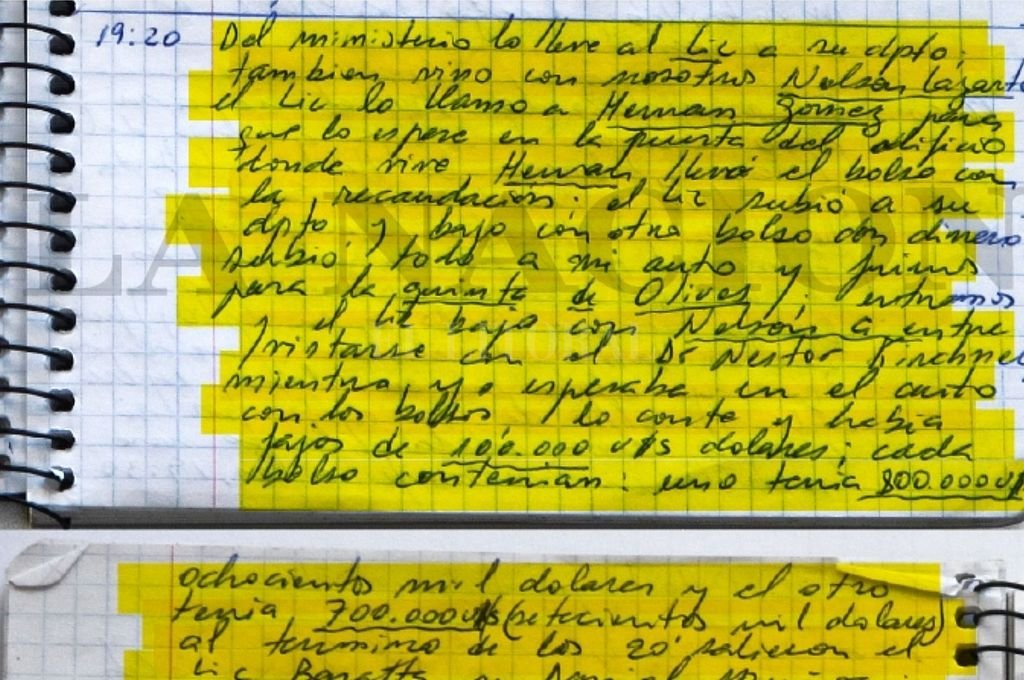 19:20 Del ministerio lo lleve al Lic a su dpto;
tambien vino con nosotros Nelson Lazarte
el Lic lo llamo a Hernan Gomez para
que lo espere en la puerta del edificio
donde vive Hernan llevó el bolso con
la recaudacion; el Lic subió a su
dpto y bajo con otro bolso con dinero
subió todo a mi auto y fuimos
para la quinta de Olivos; entramos
y el Lic bajo con Nelson a entre
vistarse con el Dr Nestor Kirchner
mientras yo esperaba en el auto
con los bolsos, lo conte y habia
fajos de 100.000 u$s dolares; cada
bolso contenian: uno tenia 800.000 u$
ochocientos mil dolares y el otro
tenia 700.000 u$s (setecientos mil dolares)
al termino de los 20' salieron el
Lic Baratta
LA NACION